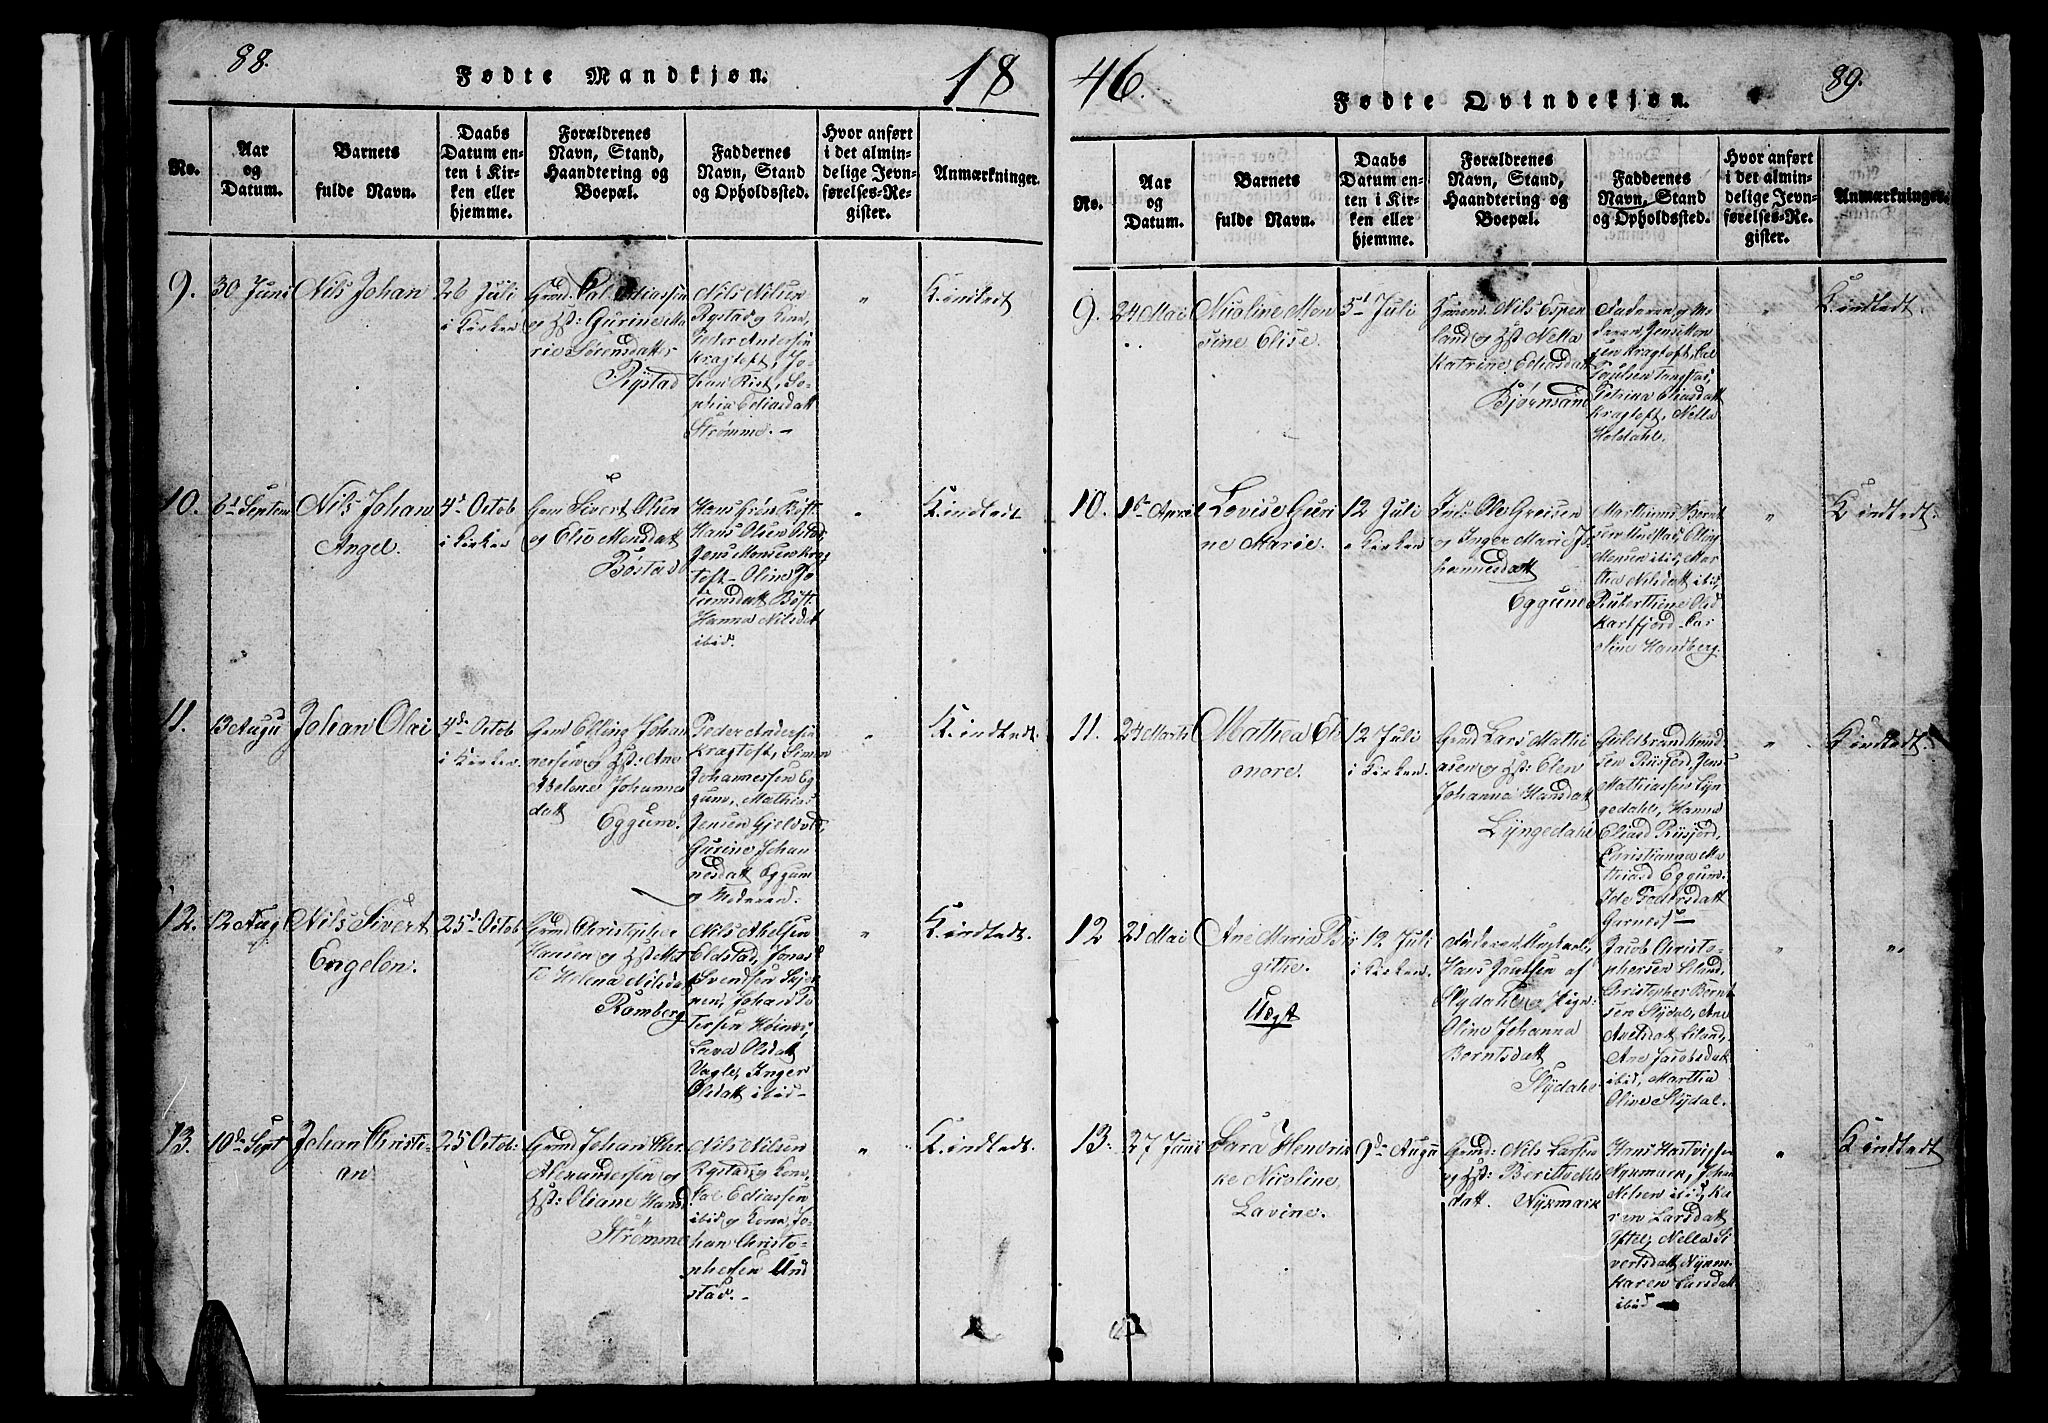 88.
Fødte Mandkjøn.
18
No.
Aar
og
Datum.
Barnets
fulde Navn.
Daabs
Datum en-
ten i Kir-
ken eller
hjemme.
Forældrenes
Navn, Stand,
Haandtering og
Boepæl.
Faddernes
Navn, Stand
og Opholdssted.
Hvor anført
i det almin-
delige Jevn-
førelses-Re-
gister.
Anmærkninger.
9.
30 Juni
Nils Johan
26 Juli
i Kirken
Gmd. Pal Ediassen
og Hst: Gurine Ma
rie Sørensdatter
Rystad
Nils Nilsen
Rystad og Kone,
Peder Andersen
Kragtoft, Jo-
han Rist, So-
phia Ediasdatt
Strømme. -
"
K. indtedt
10.
6d Septem
Nils Johan
Angel.
4d Octob
i Kirken
Gmd Sivert Olsen
og Elio Monsdatt
Bøstad
Hans
Hans Olsen
Jens Monsen Krag
toft - Oline Jo
cumsdatt Bøst.
Hanna Nilsdat
ibid.
"
K. indtedt
11.
13 Augu
Johan Olai
4de Octob
i Kirken.
Gmd Elling Johan
nesen og Hst: Ane
Abelone Johannes
datt
Eggum.
Peder Andersen
Kragtoft, Simon
Johannessen Eg
gum, Mathias
Jensen Gjelvold,
Gurine Johan
nesdatt Eggum
og Moderen.
"
K. indtedt.
12.
12 Aug
Nils Sivert
Engelen.
25d. Octob
Gmd Christopher
Hansen og Hst: Met
te Helena Nilsdat
Ramberg
Nils Abelsen
Eldstad, Jonas
Svendsen
Johan Pe
tersen Høines,
Lava Olsdatt
Vagle, Inger
Olsdatt ibid -
"
K. indtedt.
13.
10de Sept
Johan Christi-
an
25 Octob:
Gmd Johan Chr.
Alexandersen og
Hst: Oliane Hans
Strømme
Nils Nilsen
Rystad og Kone,
Pal Ediassen
ibid og Kone, Jo-
han Christo-
phersen Und
stad. -
"
K. indtedt.
46
89.
Fødte Qvindekjøn.
No.
Aar
og
Datum.
Barnets
fulde Navn.
Daabs
Datum en-
ten i Kir-
ken eller
hjemme.
Forældrenes
Navn, Stand,
Haandtering og
Boepæl.
Faddernes
Navn, Stand
og Opholdssted.
Hvor anført
i det almin-
delige Jevn-
førelses-Re-
gister.
Anmærkninger.
9.
24 Mai
Nicoline Mon
sine Elise.
5d Juli
Gmend. Nils Espen
land og Hst: Nella
Katrine Ediasdatt
Bjørnsand
Faderen og Mo
deren, Jens Mon
sen Kragtoft, Pal
Poulsen Tangstad,
Petrina Eliasdatt
Kragtoft, Nella
Holdahl.
"
K indtedt.
10.
1ste April
Lovise Guri
ne Marie.
12 Juli
i Kirken
Inds: Ole Greisen
og Inger Marie Jo
hannesdatt
Eggum
Marthinus Bernt
sen Unstad, Elling
Monsen ibid, Mar
tha Nilsdatt ibid,
Ruberthine Olsd
Kartfjord - Ca
roline Handberg.
"
K indtedt.
11.
24 Marts
Mathea El
onore.
12 Juli
i Kirken.
Gmd Lars Mathi
asen og Hst: Elen
Johanna Hansdatt
Lyngedahl
Guldbrand Knud
sen Risfjord, Jens
Mathiassen Lyn
gedahl, Hanna
Eliasd Risfjord,
Christianna Ma
thiasd Eggum,
Ide Pedersdatt
Garnes
"
K indtedt.
12
21 Mai
Ane Maria Bri
githe.
Uægt
12 Juli
i Kirken.
Faderen, Ungkarl,
Hans Poulsen af
Slydahl og Pigen:
Oline Johanna
Berntsdatt
Slydahl
Jacob Christo-
phersen Eiland,
Christopher Bernt
sen Slydal, Ane
Axelsdatt Eiland,
Ane Jacobsdatt
ibid, Martha
Oline Slydal.
"
"
13.
27 Juni
Sara Hendrik
ke Nicoline
Lavine.
9de Augu
Gmd: Nils Larsen
og Hst: Berit Nils
datt. Nykmark
Hans Hartvigsen
Nykmark, Johan
Nilsen ibid, Ka
ren Larsdatt
Ofstel, Nella Si
vertsdatt, Nykm.
Karen Larsdatt
ibid -
"
K indtedt